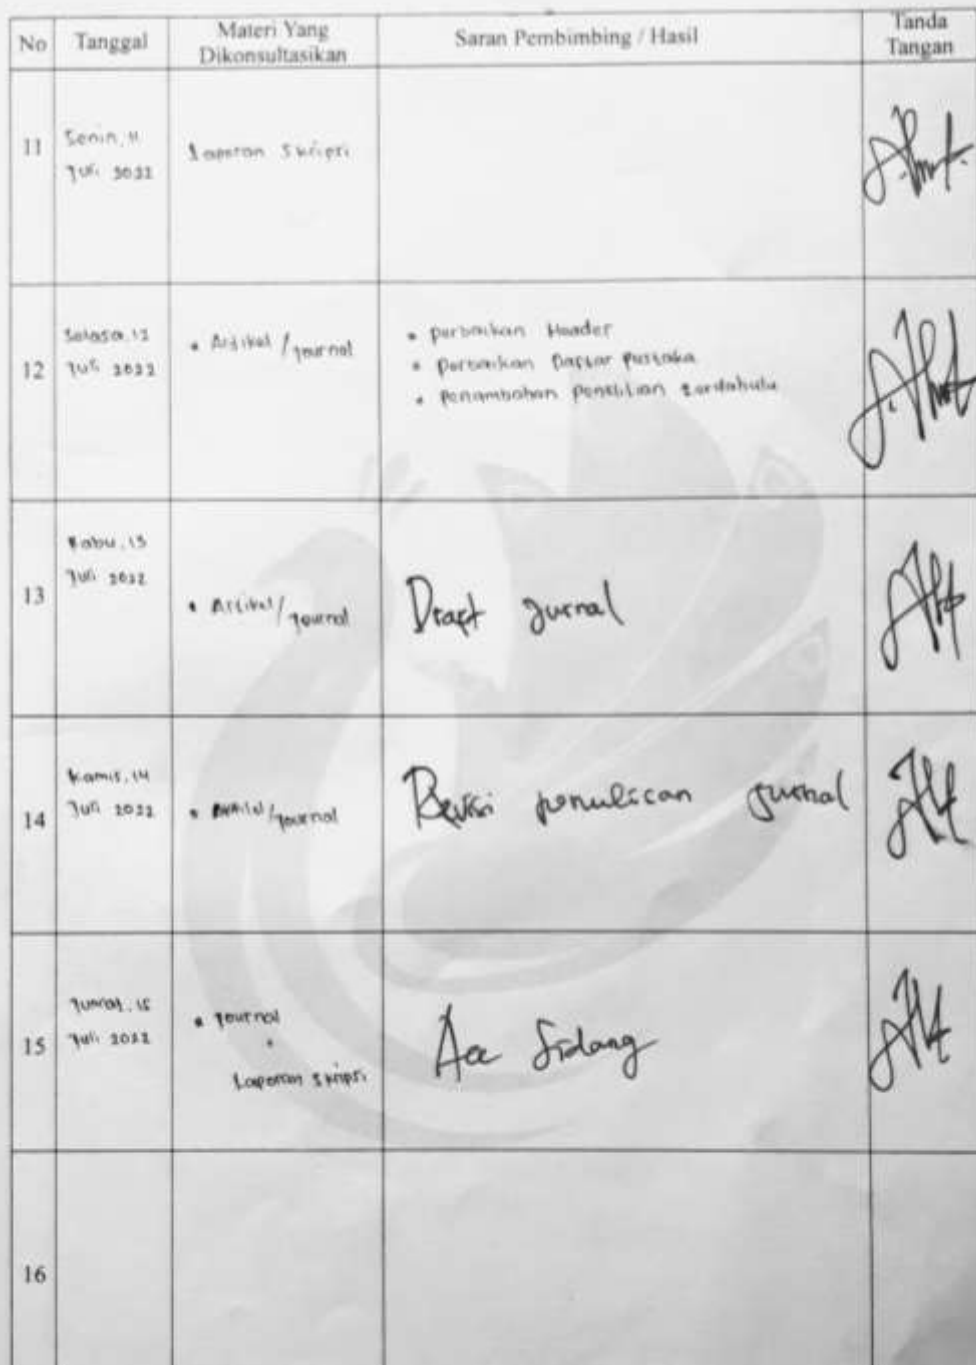 No Tanggal Materi Yang Dikonsultasikan Saran Pembimbing / Hasil Tanda Tangan
11
Senin, 11
Juli 2022
Laporan Skripsi
12
Selasa, 12
Juli 2022
• Artikel / Journal
• perbaikan Header
• perbaikan Daftar pustaka
• penambahan penelitian terdahulu
13
Rabu, 13
Juli 2022
• Artikel / Journal
Draft Jurnal
14
Kamis, 14
Juli 2022
• Artikel / Journal
Revisi penulisan Jurnal
15
Jumat, 15
Juli 2022
• Journal
•
Laporan Skripsi
Acc Sidang
16